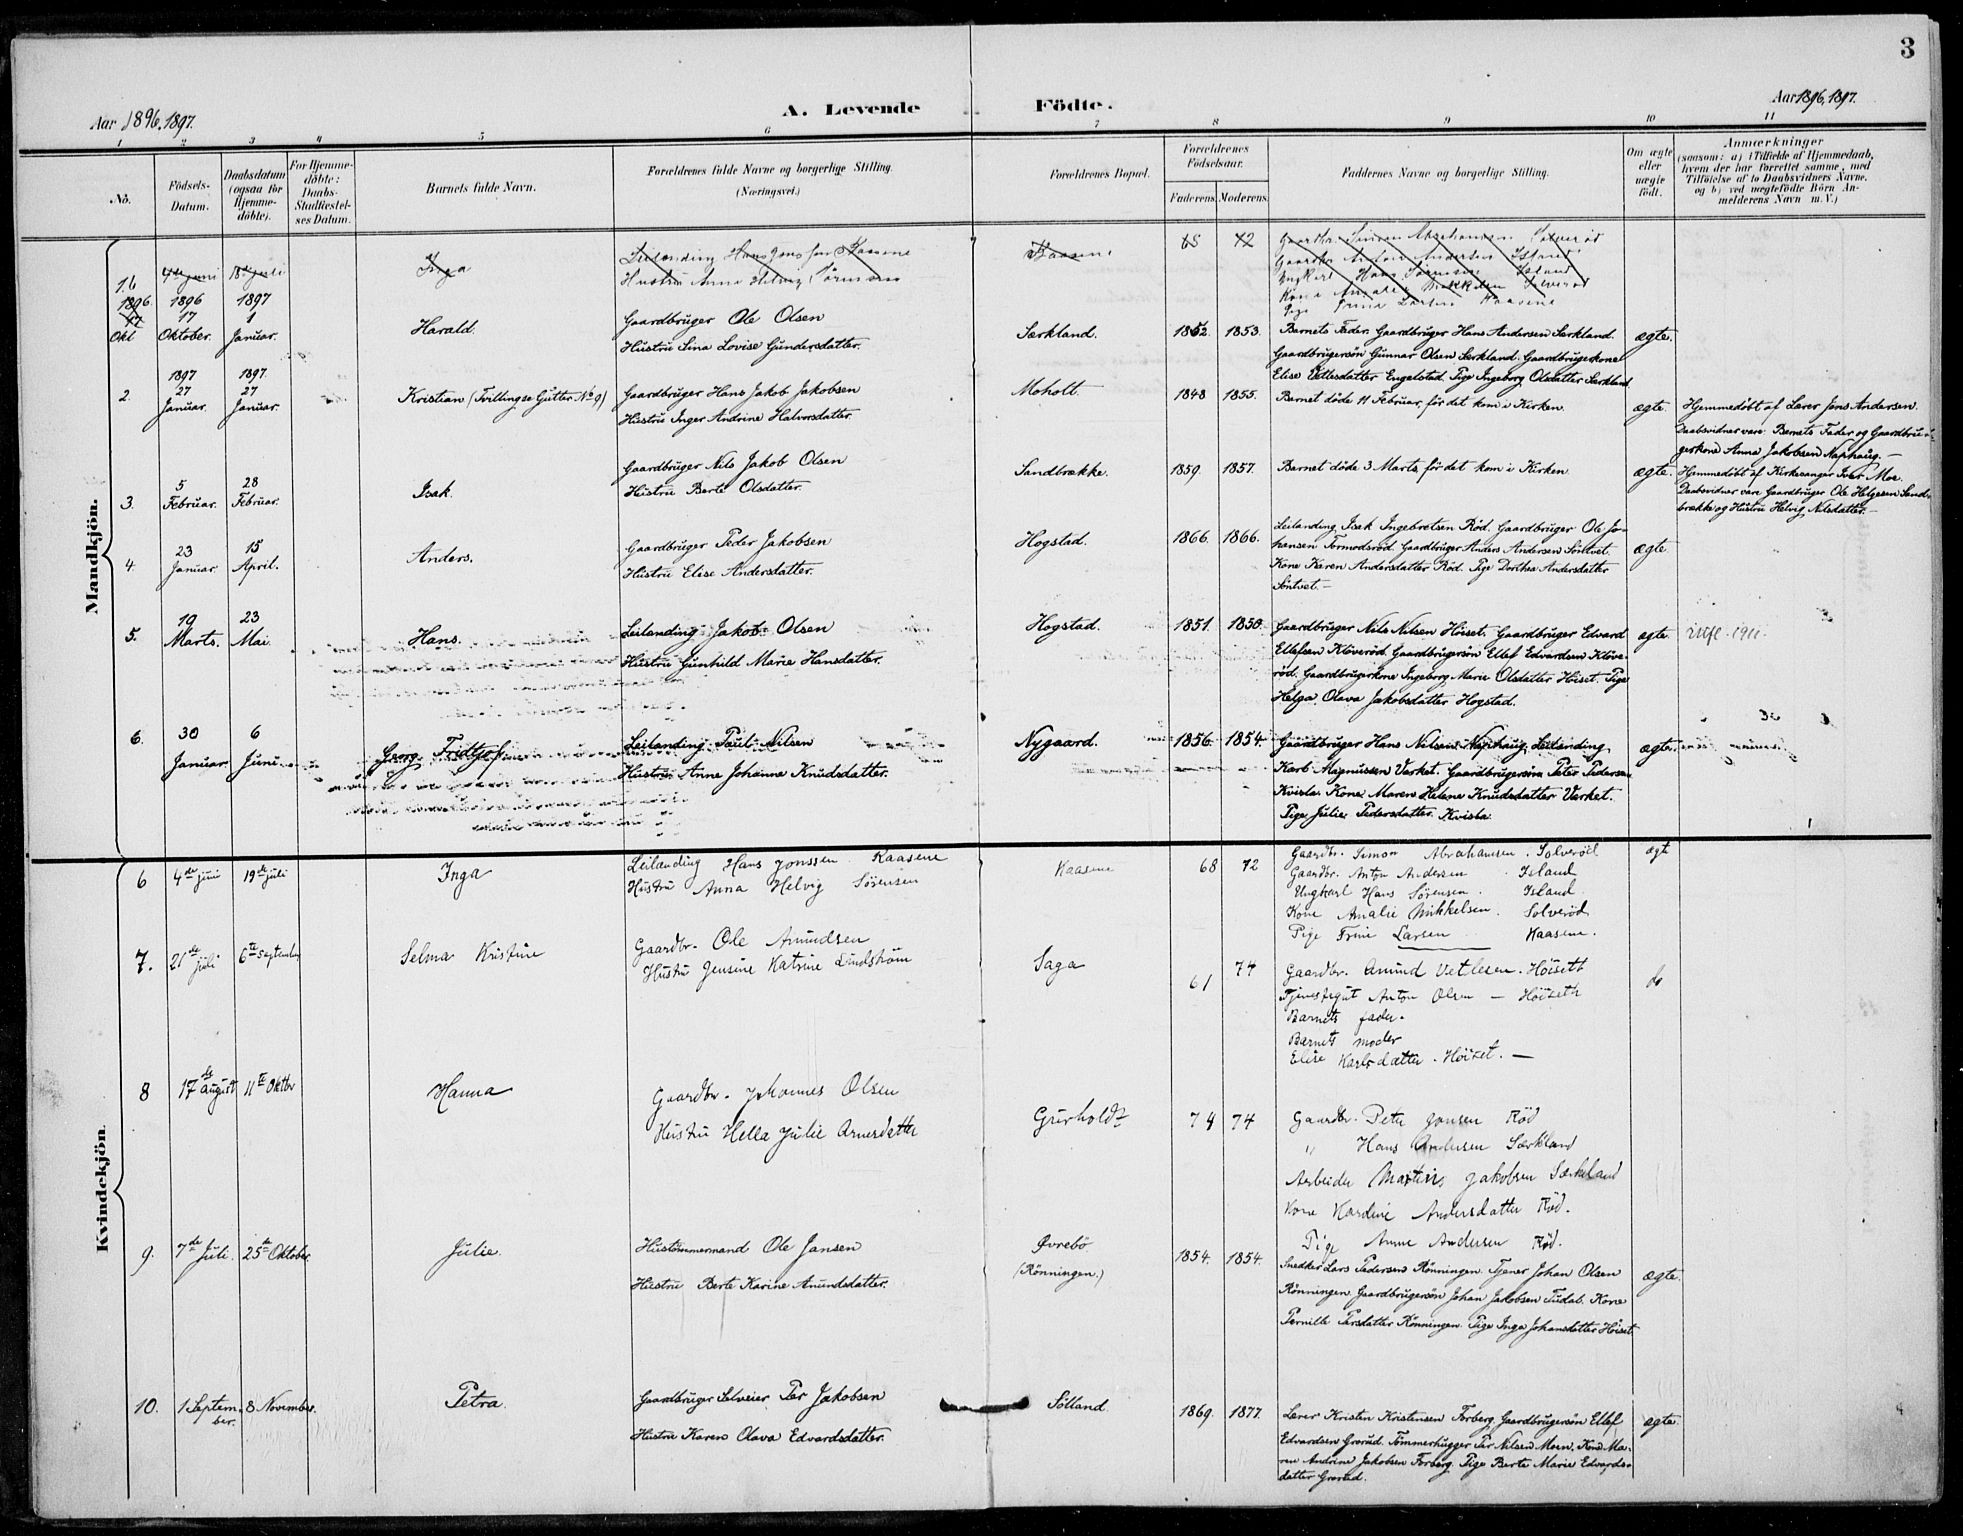 3
Aar 1896. 1897.
A. Levende Födte.
Aar 1896, 1897.
1 2 3 4 5 6 7 8 9 10 11
No.
Födsels-Datum.
Daabsdatum (ogsaa for Hjemme-döbte).
For Hjemme-döbte: Daabs-Stadfæstel-ses Datum.
Barnets fulde Navn.
Forældrenes fulde Navne og borgerlige Stilling. (Næringsvei.)
Forældrenes Bopæl.
Forældrenes Födselsaar.
Faderens. Moderens.
Faddernes Navne og borgerlige Stilling.
Om ægte eller uægte födt.
Anmærkninger
(saasom: a) i Tilfælde af Hjemmedaab,
hvem der har forrettet samme, med
Tilföielse af to Daabsvidners Navne,
og b) ved uægtefödte Börn An-
melderens Navn m. V.)
Mandkjön.
4de juni 18de juli Inga
Leilænding Hans Jonssen Kaasene
Hustru Anna Helvig Sørensen
Kaasene
68 72
Gaardbr. Simon Abrahamsen Solverød
Gaardbr Anton Andersen Island
Ungkarl Hans Sørensen Island
Kone Amalie Mikkelsen Solverød
Pige Trine Larsen Kaasene
1896 1896 1897
17 Oktober. 1 Januar.
Harald.
Gaardbruger Ole Olsen
Hustru Lina Lovise Gundersdatter.
Særkland.
1852. 1853.
Barnets Fader. Gaardbruger Hans Andersen Særkland.
Gaardbrugersøn Gunnar Olsen Særkland. Gaardbrugerkone
Elise Vetlesdatter Engelstad. Pige Ingeborg Olsdatter Særkland
ægte.
2. 1897 27 Januar. 1897. 27 Januar.
Kristian (Tvillingse Gutter No 9)
Gaardbruger Hans Jakob Jakobsen
Hustru Inger Andrine Halvorsdatter.
Moholt.
1848 1855.
Barnet døde 11 Februar, før det kom i Kirken.
ægte.
Hjemmedøbt af Lærer Jens Andersen.
Daabsvidner vare: Barnets Fader og Gaardbru-
gerkone Anna Jakobsen Naphaug. —
3. 5 Februar. 28 Februar.
Isak.
Gaardbruger Nils Jakob Olsen
Hustru Berte Olsdatter.
Sandbrække.
1859. 1857.
Barnet døde 3 Marts, før det kom i Kirken
ægte.
Hjemmedøbt af Kirkesanger Iver Moe.
Daabsvidner vare Gaardbruger Ole Helgesen Sand-
brække og Hustru Helvig Nilsdatter. —
4. 23 Januar. 15 April.
Anders.
Gaardbruger Peder Jakobsen
Hustru Elise Andersdatter.
Hogstad.
1866. 1866.
Leilænding Isak Ingebretsen Rød. Gaardbruger Ole Jo-
hansen Tormodsrød. Gaardbruger Anders Andersen Söntvet.
Kone Karen Andersdatter Rød. Pige Dorthea Andersdatter
Söntvet. —
ægte
5. 19 Marts. 23 Mai.
Hans.
Leilænding Jakob Olsen
Hustru Gunhild Marie Hansdatter.
Hogstad.
1851. 1850.
Gaardbruger Nils Nilsen Høiset. Gaardbruger Edvard
Ellefsen Kløverød. Gaardbrugersøn Ellef Edvardsen Kløve-
rød. Gaardbrugerkone Ingeborg Marie Olsdatter Høiset. Pige
Helga Olava Jakobsdatter Hogstad.
ægte. 1911.
6. 30 Januar. 6 Juni
Georg Fridtjof
Leilænding Paul Nilsen
Hustru Anne Johanne Knudsdatter.
Nygaard.
1856. 1854.
Gaardbruger Hans Nilsen Naphaug. Leilænding
Karl Magnussen Varket. Gaardbrugersøn Peter Pedersen
Kvisla. Kone Maren Helene Knudsdatter Varket.
Pige Julie Pedersdatter Kvisla.
ægte.
Kvindekjön.
6 4de juni 19de juli
Inga
Leilænding Hans Jonssen Kaasene
Hustru Anna Helvig Sørensen
Kaasene
68 72
Gaardbr. Simon Abrahamsen. Solverød
Gaardbr. Anton Andersen Island
Ungkarl Hans Sørensen. Island
Kone Amalie Mikkelsen. Solverød
Pige Trine Larsen Kaasene.
ægte
7. 21de juli 6te September
Selma Kristine
Gaardbr. Ole Amundsen
Hustru Jensine Katrine Lindstrøm
Saga
61 74
Gaardbr. Amund Vetlesen. Høisett
Tjenestegut Anton Olsen — Høiseth
Barnets fader.
Barnets moder
Elise Karlsdatter. Høiset. —
do
8 17de August 11te Oktbr
Hanna
Gaardbr. Johannes Olsen
Hustru Hella Julie Arnesdatter
Gurholdt
74 74
Gaardbr. Peter Jonsen Rød
" Hans Andersen Særkland
Arbeider Martin Jakobsen Særkland
Kone Kardine Andersdatter Rød.
Pige Anne Andersen Rød.
9. 7de Juli. 25de Oktober.
Julie.
Hustømmermand Ole Jansen
Hustru Berte Karine Amundsdatter.
Øvrebö
(Rønningen.)
1854. 1854.
Snedker Lars Pedersen Rønningen. Tjener Johan Olsen
Rønningen. Gaardbrugersøn Johan Jakobsen Tudal. Kone
Pernille Persdatter Rønningen. Pige Inga Johansdatter Høiset.
ægte.
10. 1 Septem-ber. 8 November.
Petra.
Gaardbruger Selveier Per Jakobsen
Hustru Karen Olava Edvardsdatter.
Sølland.
1869. 1877.
Lærer Kristen Kristensen Forberg. Gaardbrugersøn Ellef
Edvardsen Grorud. Tømmerhugger Per Nilsen Moen. Kone Ma-
ren Andrine Jakobsen Forberg. Pige Berte Marie Edvards-
datter Grorud.
ægte